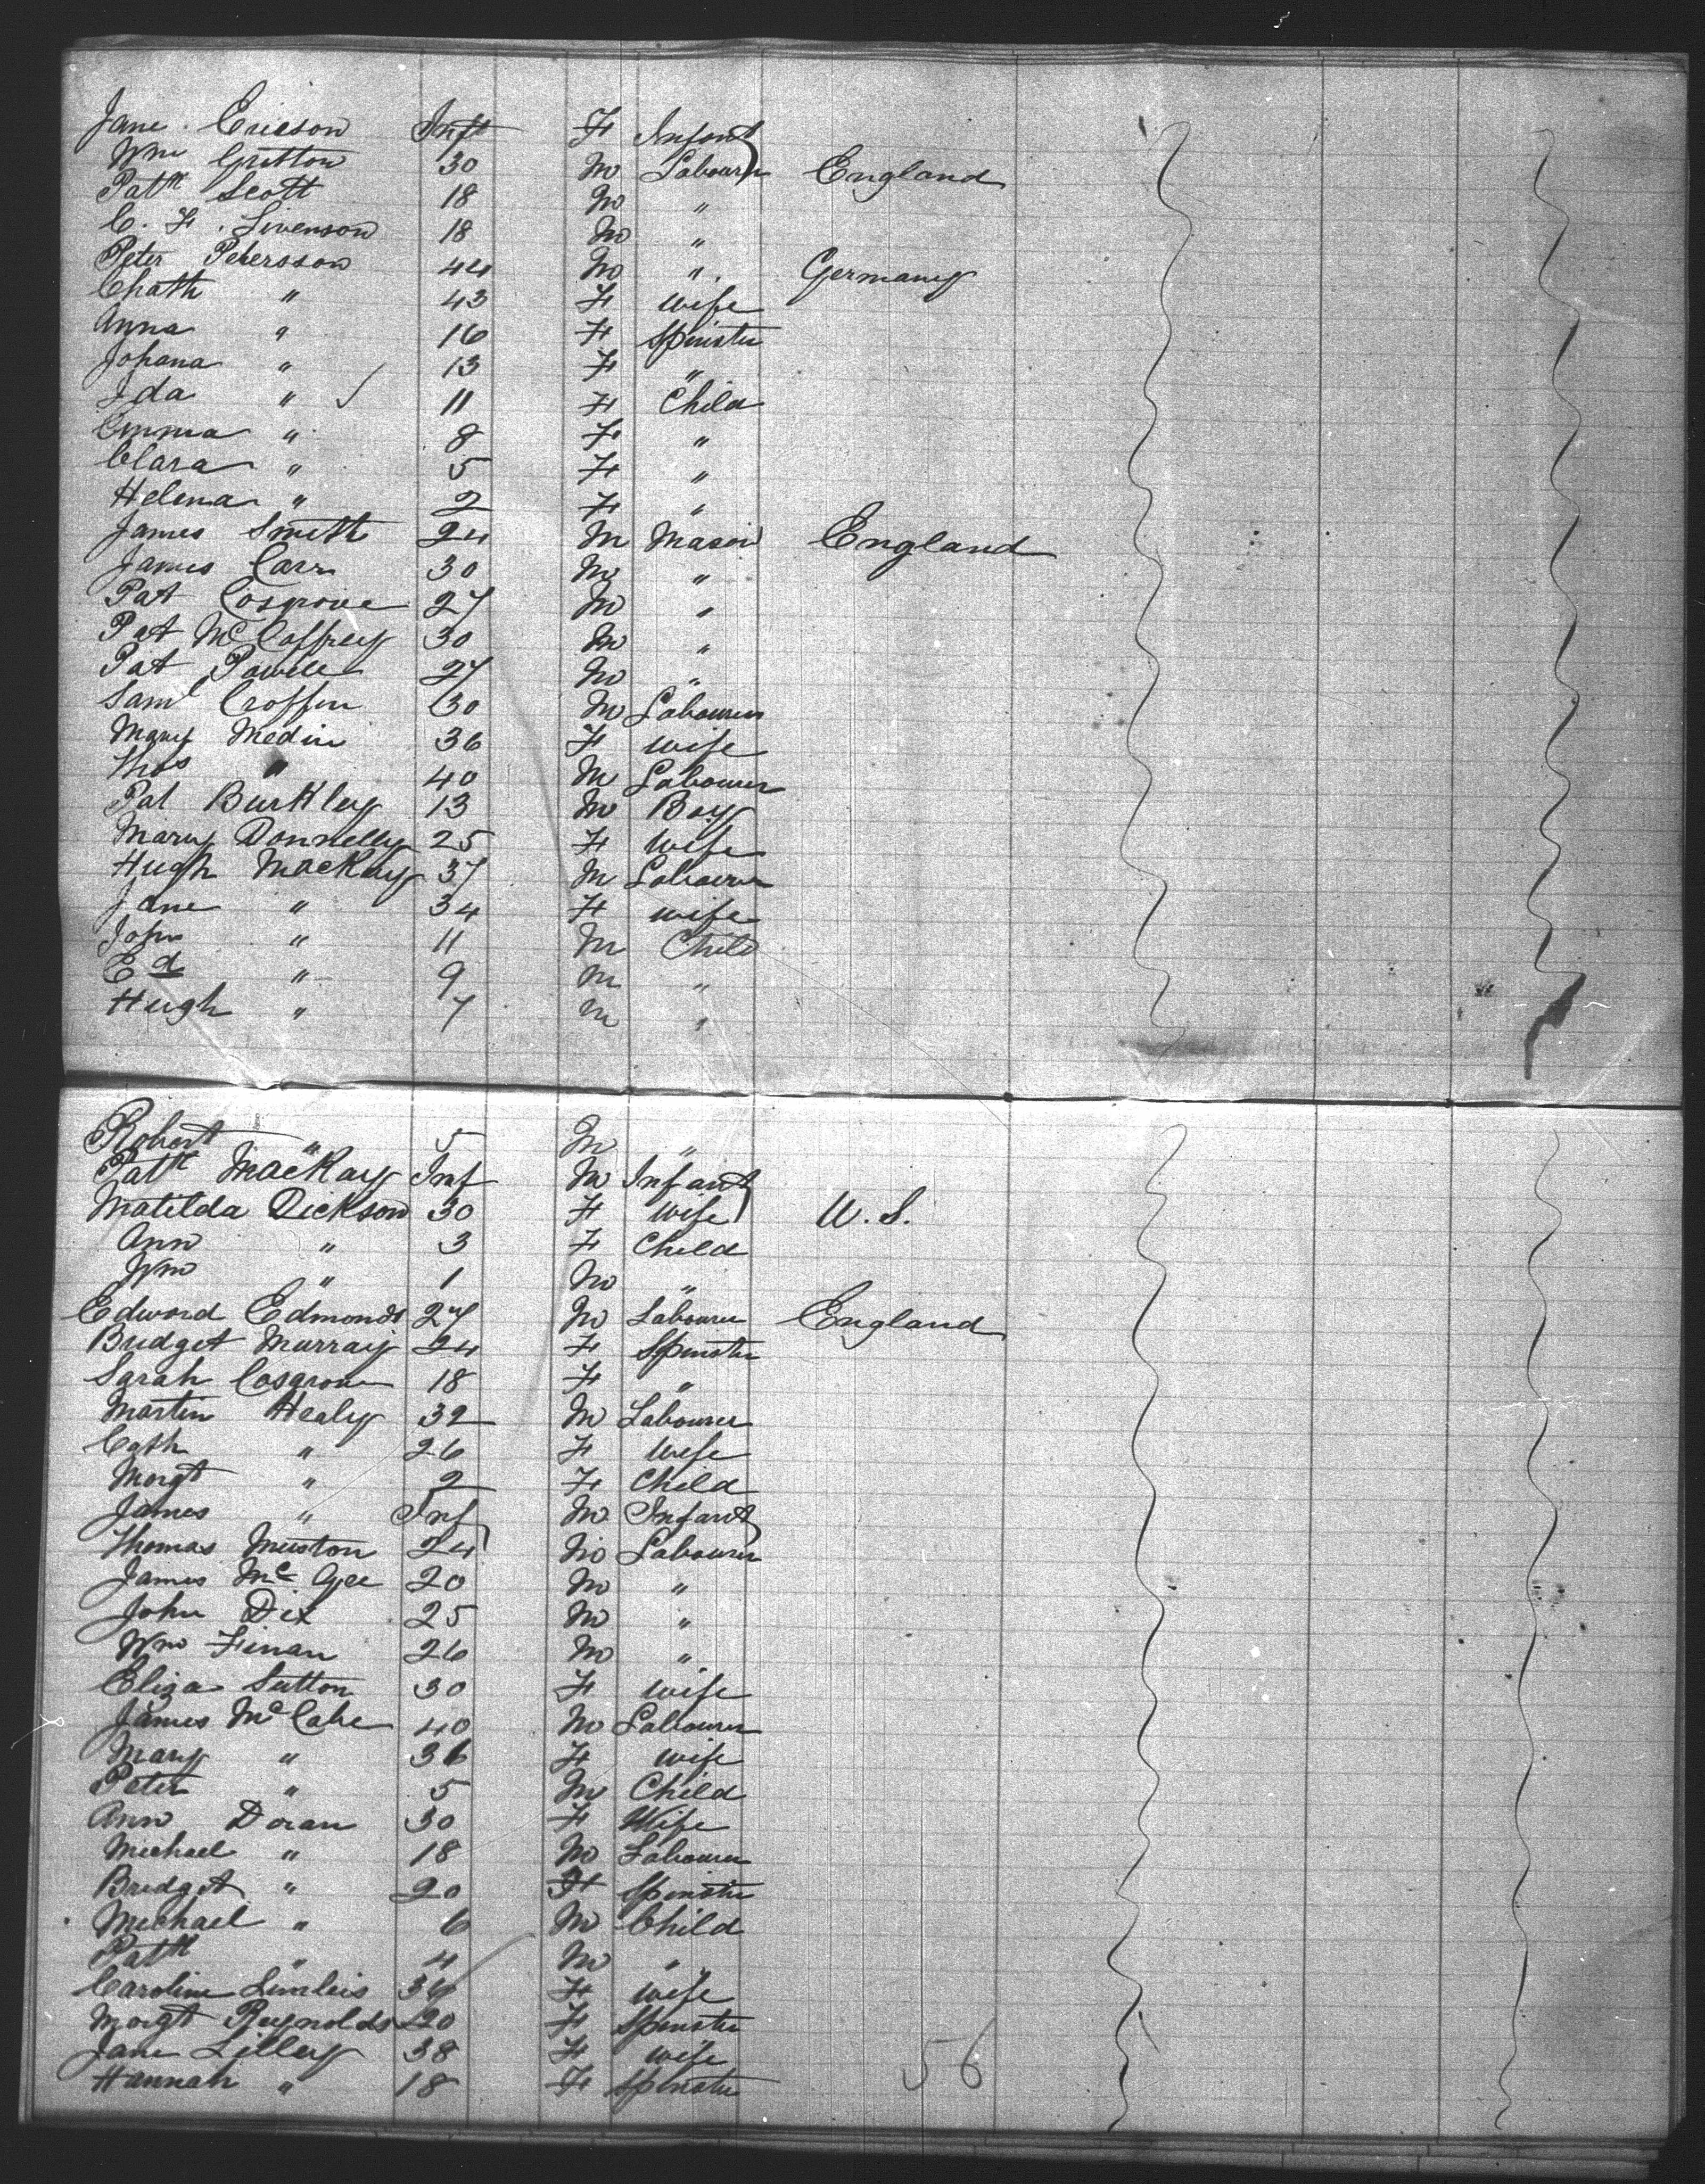 Jane Ericson Inft F Infant
Wm Gritton 30 M Labourer England
Patk Scott 18 M "
C. F. Sivenson 18 M "
Peter Petersson 44 M " Germany
Chath " 43 F wife
Anna " 16 F Spinster
Johana " 13 F "
Ida " 11 F Child
Emma " 8 F "
Clara " 5 F "
Helena " 2 F "
James Smith 24 M Mason England
James Carr 30 M "
Pat Cosgrove 27 M "
Pat McCaffrey 30 M "
Pat Powell 27 M "
Saml 30 M Labourer
Mary Medin 36 F wife
Thos " 40 M Labourer
Pat Burkley 13 M Boy
Mary Donnelly 25 F wife
Hugh MacKay 37 M Labourer
Jane " 34 F wife
John " 11 M Child
Ed " 9 M "
Hugh " 7 M "
Robert " 5 M "
Patk MacKay Inf M Infant
Matilda Dickson 30 F wife U.S.
Ann " 3 F Child
Wm " 1 M "
Edward Edmonds 27 M Labourer England
Bridget Murray 24 F Spinster
Sarah Cosgrove 18 F "
Martin Healy 32 M Labourer
Cath " 26 F wife
Margt " 2 F Child
James " Inf M Infant
Thomas Muston 24 M Labourer
James McGee 20 M "
John Dix 25 M "
Wm Finan 26 M "
Eliza Sutton 30 F wife
James McCabe 40 M Labourer
Mary " 36 F wife
Peter " 5 M Child
Ann Doran 30 F Wife
Michael " 18 M Labourer
Bridget " 20 F Spinster
Michael " 6 M Child
Patk " 4 M "
Caroline 34 F wife
Margt Reynolds 20 F Spinster
Jane Lilley 38 F wife
Hannah " 18 F Spinster
56